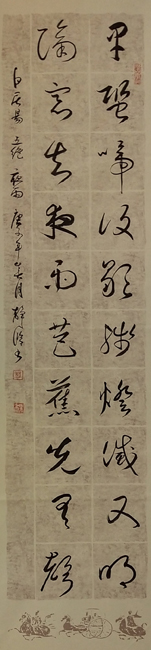 早蛩啼復歇殘燈滅又明
隔窗知夜雨芭蕉先有聲
白居易五絕夜雨庚